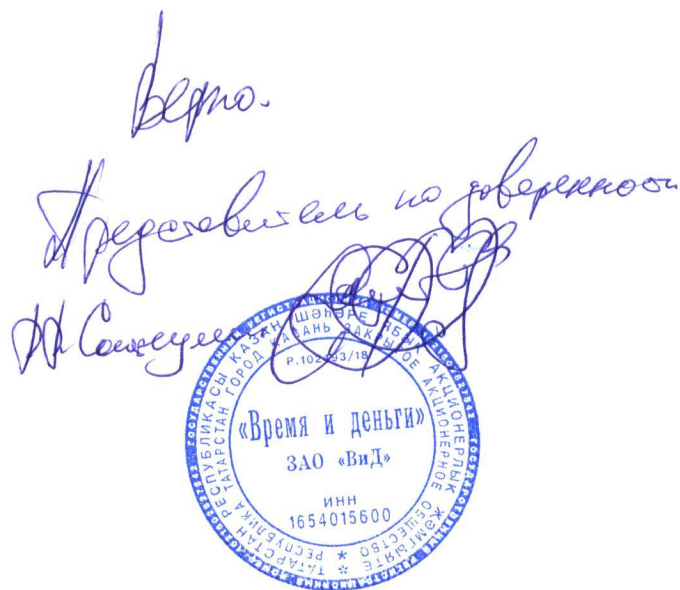 Верно.
Представитель по доверенности
ТАТАРСТАН РЕСПУБЛИКАСЫ КАЗАН ШӘҺӘРЕ ЯБЫК АКЦИОНЕРЛЫК ҖӘМГЫЯТЕ
РЕСПУБЛИКА ТАТАРСТАН ГОРОД КАЗАНЬ ЗАКРЫТОЕ АКЦИОНЕРНОЕ ОБЩЕСТВО
«Время и деньги»
ЗАО «ВиД»
ИНН
1654015600